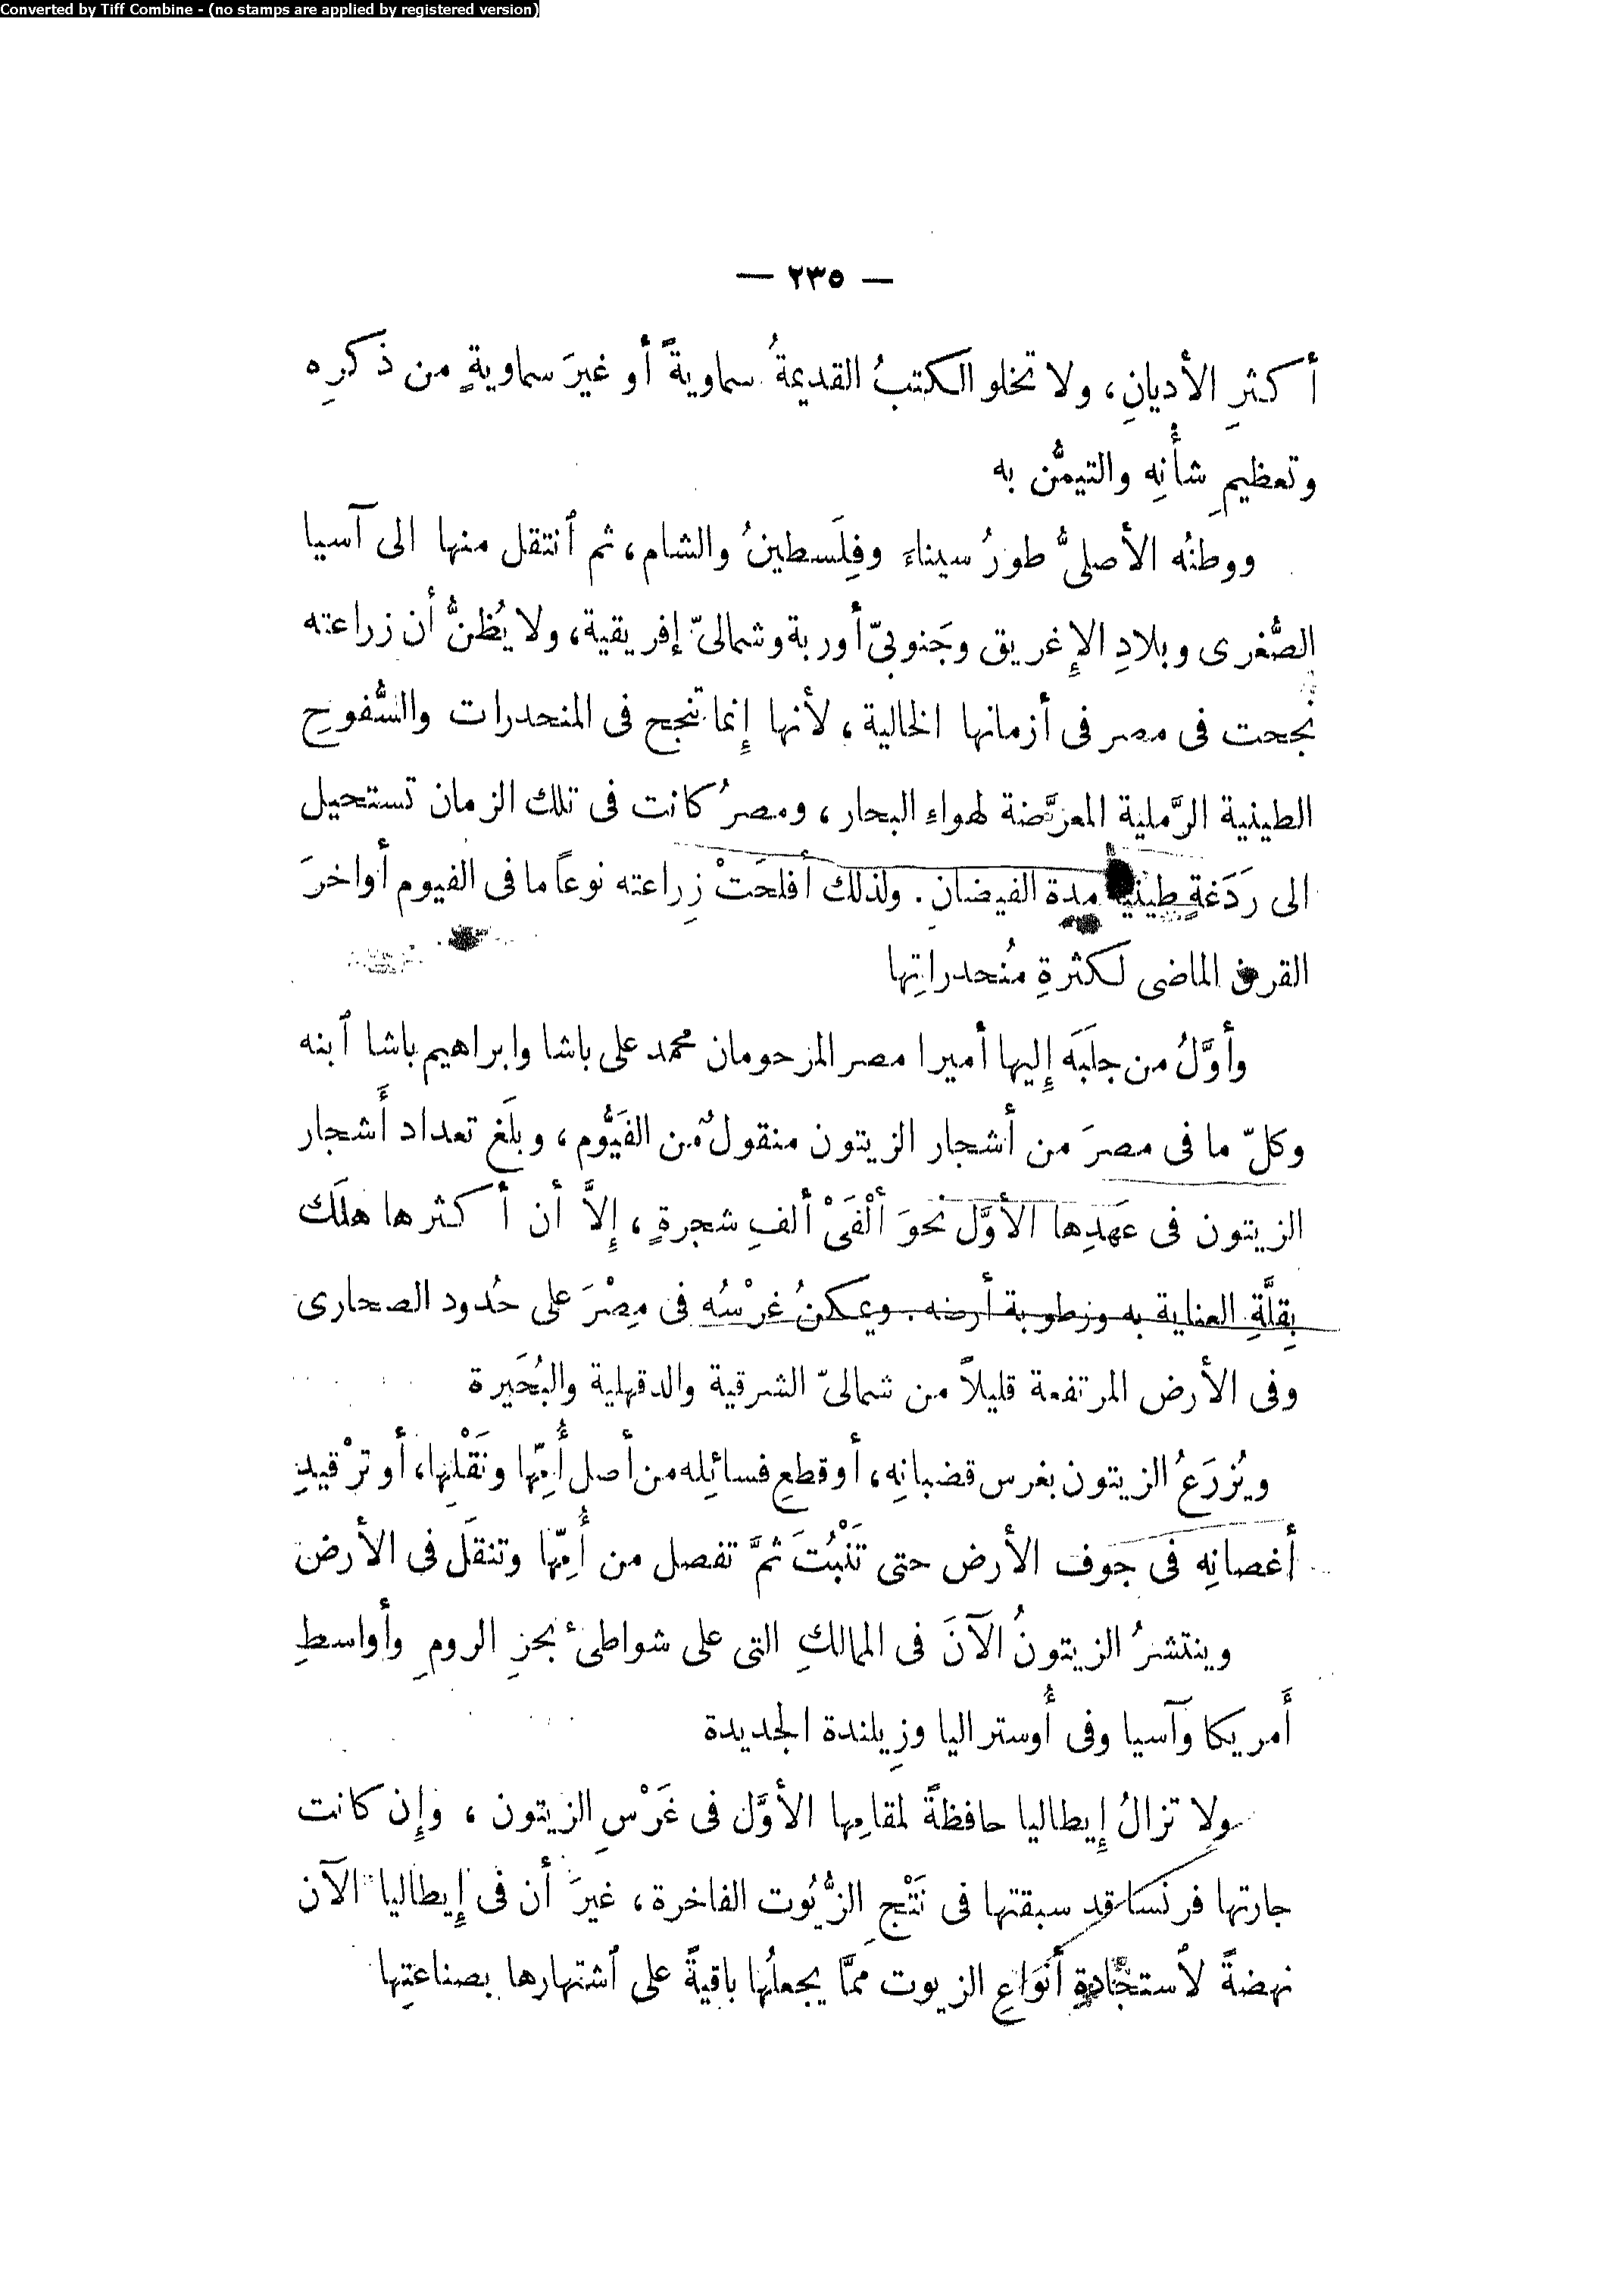 Converted by Tiff Combine - (no stamps are applied by registered version)
— ٢٣٥ —
أكثرِ الأديانِ، ولا تخلو الكتبُ القديمةُ سماويةً أو غيرَ سماويةٍ من ذكرِه
وتعظيمِ شأنِه والتيمُّن به
ووطنُه الأصلىُّ طورُ سيناءَ وفِلَسطينُ والشام، ثم ٱنتقل منها الى آسيا
الصُّغرى وبلادِ الإغريق وجَنوبىّ أوربة وشمالىّ إفريقية، ولا يُظنُّ أن زراعته
نجحت فى مصر فى أزمانها الخالية، لأنها إنما تنجح فى المنحدرات والسُّفوحِ
الطينية الرَّملية المعرَّضة لهواءِ البحار، ومصرُ كانت فى تلك الزمان تستحيل
الى رَدَغةٍ طينية مدة الفيضانِ. ولذلك أفلحَتْ زِراعته نوعاً ما فى الفيوم أواخرَ
القرن الماضى لكثرةِ مُنحدراتِها
وأوَّلُ من جلَبَه إليها أميرا مصر المرحومان محمد على باشا وابراهيم باشا ٱبنه
وكلّ ما فى مصرَ من أشجار الزيتون منقولٌ من الفَيُّوم، وبلَغ تعداد أَشجار
الزيتون فى عَهدِها الأوَّل نحوَ ألْفَىْ ألفِ شجرةٍ، إلاَّ أن أكثرها هلَك
بقِلَّةِ العناية به ورطوبة أرضه. ويمكنُ غرْسُه فى مِصْرَ على حُدود الصحارى
وفى الأرض المرتفعة قليلاً من شمالىّ الشرقية والدقهلية والبُحَيرة
ويُزرَعُ الزيتون بغرس قضبانِه، أو قطعِ فسائلِه من أصل أُمِّها ونَقْلِها، أو ترْقيدِ
أغصانِه فى جوف الأرض حتى تَنْبُتَ ثمَّ تفصل من أُمِّها وتنقَل فى الأرض
وينتشرُ الزيتونُ الآنَ فى الممالكِ التى على شواطئ بحرِ الرومِ وأواسطِ
أَمريكا وآسيا وفى أُوستراليا وزِيلندة الجديدة
ولا تزالُ إيطاليا حافظةً لمقامِها الأوَّل فى غَرْسِ الزيتون، وإن كانت
جارتها فرنسا قد سبقتها فى نَتْجِ الزُّيُوت الفاخرة، غيرَ أن فى إيطاليا الآن
نهضةً لٱستجادةِ أنوَاعِ الزيوت ممَّا يجعلُها باقيةً على ٱشتهارها بصناعتِها